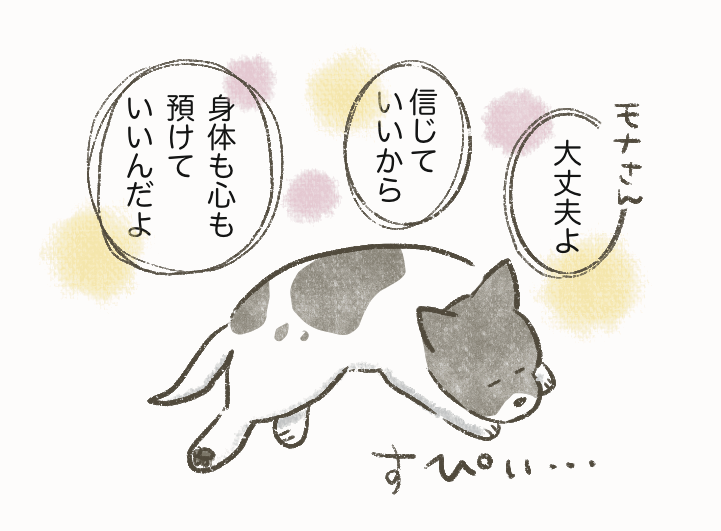 モナさん
大丈夫よ
信じて
いいから
身体も心も
預けて
いいんだよ
すぴぃぃ・・・